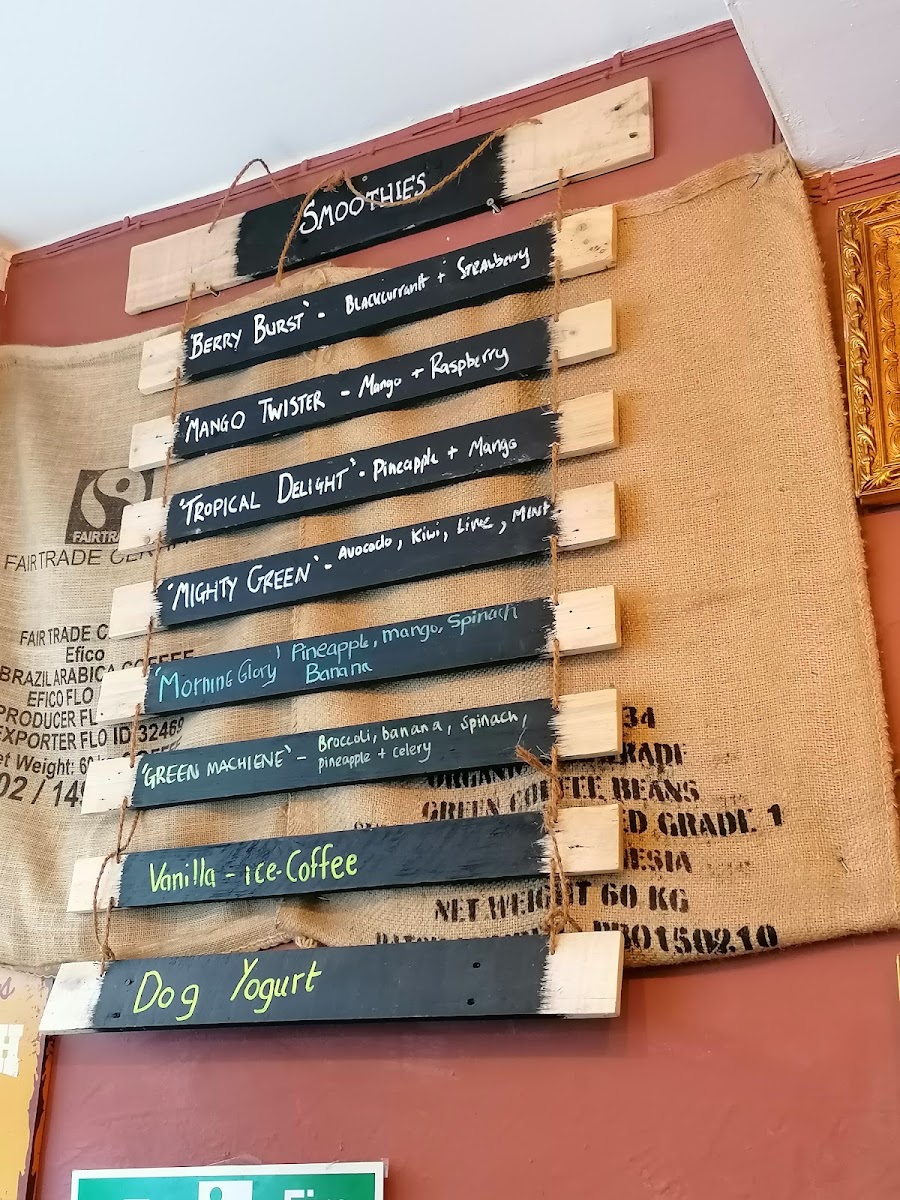 SMOOTHIES
'BERRY BURST' - BLACKCURRANT + STRAWBERRY
'MANGO TWISTER - Mango + Raspberry
'TROPICAL DELIGHT' - Pineapple + Mango
'MIGHTY GREEN' - Avocado, Kiwi, Lime, Mint
'Morning Glory' Pineapple, mango, Spinach
Banana
'GREEN MACHIENE' - Broccoli, banana, spinach,
pineapple + celery
Vanilla - ice-Coffee
Dog Yogurt
FAIRTRADE
FAIR TRADE
Efico
BRAZIL ARABICA COFFEE
EFICO FLO
PRODUCER FL
EXPORTER FLO ID 32469
et Weight: 60
02 / 14
34
RADE
ORGANIC
GREEN COFFEE BEANS
ED GRADE 1
ESIA
NET WEIGHT 60 KG
PRO150210
Fire